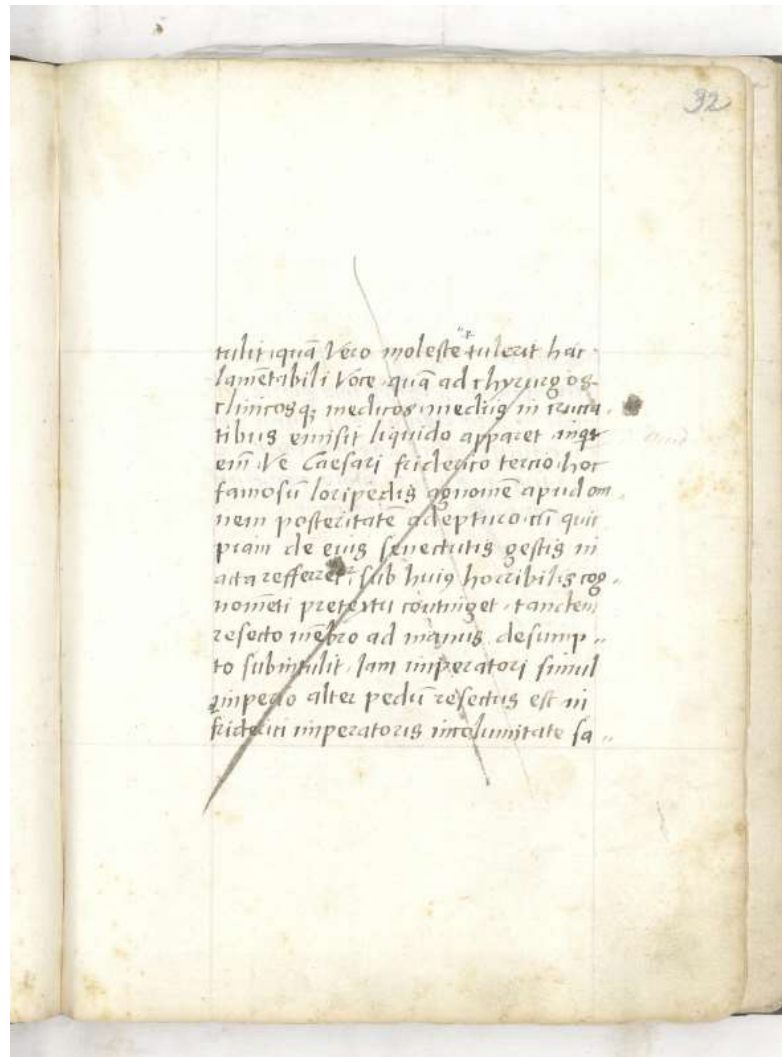 32
tulit, quā Vero moleste tulerit hac
lamētabili Voce quā ad chyrurgos
clinicosq; medicos mediꝰ in crucia
tibus emisit liquido apparet
eīn Ve Caesari friderico tercio hoc
famosū loripedis agnomē apud om
nem posteritatē adepturo cū quic
piam de eius senectutis gestis in
acta refferret, sub huiꝰ horribilis cog
nomēti pretextu continget, tandem
resecto mēbro ad manus desump
to subintulit, Iam imperatori simul
imperio alter pedū resectus est in
friderici imperatoris incolumitate sa